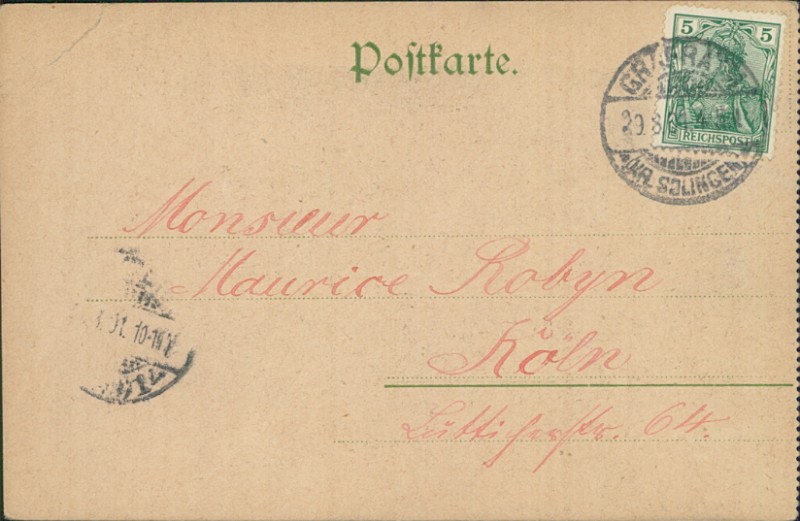 Postkarte.
5 5
REICHSPOST
GRÄFRATH
29.8.
(KR. SOLINGEN)
Monsieur
Maurice Robyn
Köln
Lütticherstr. 64.
.01. 10-11